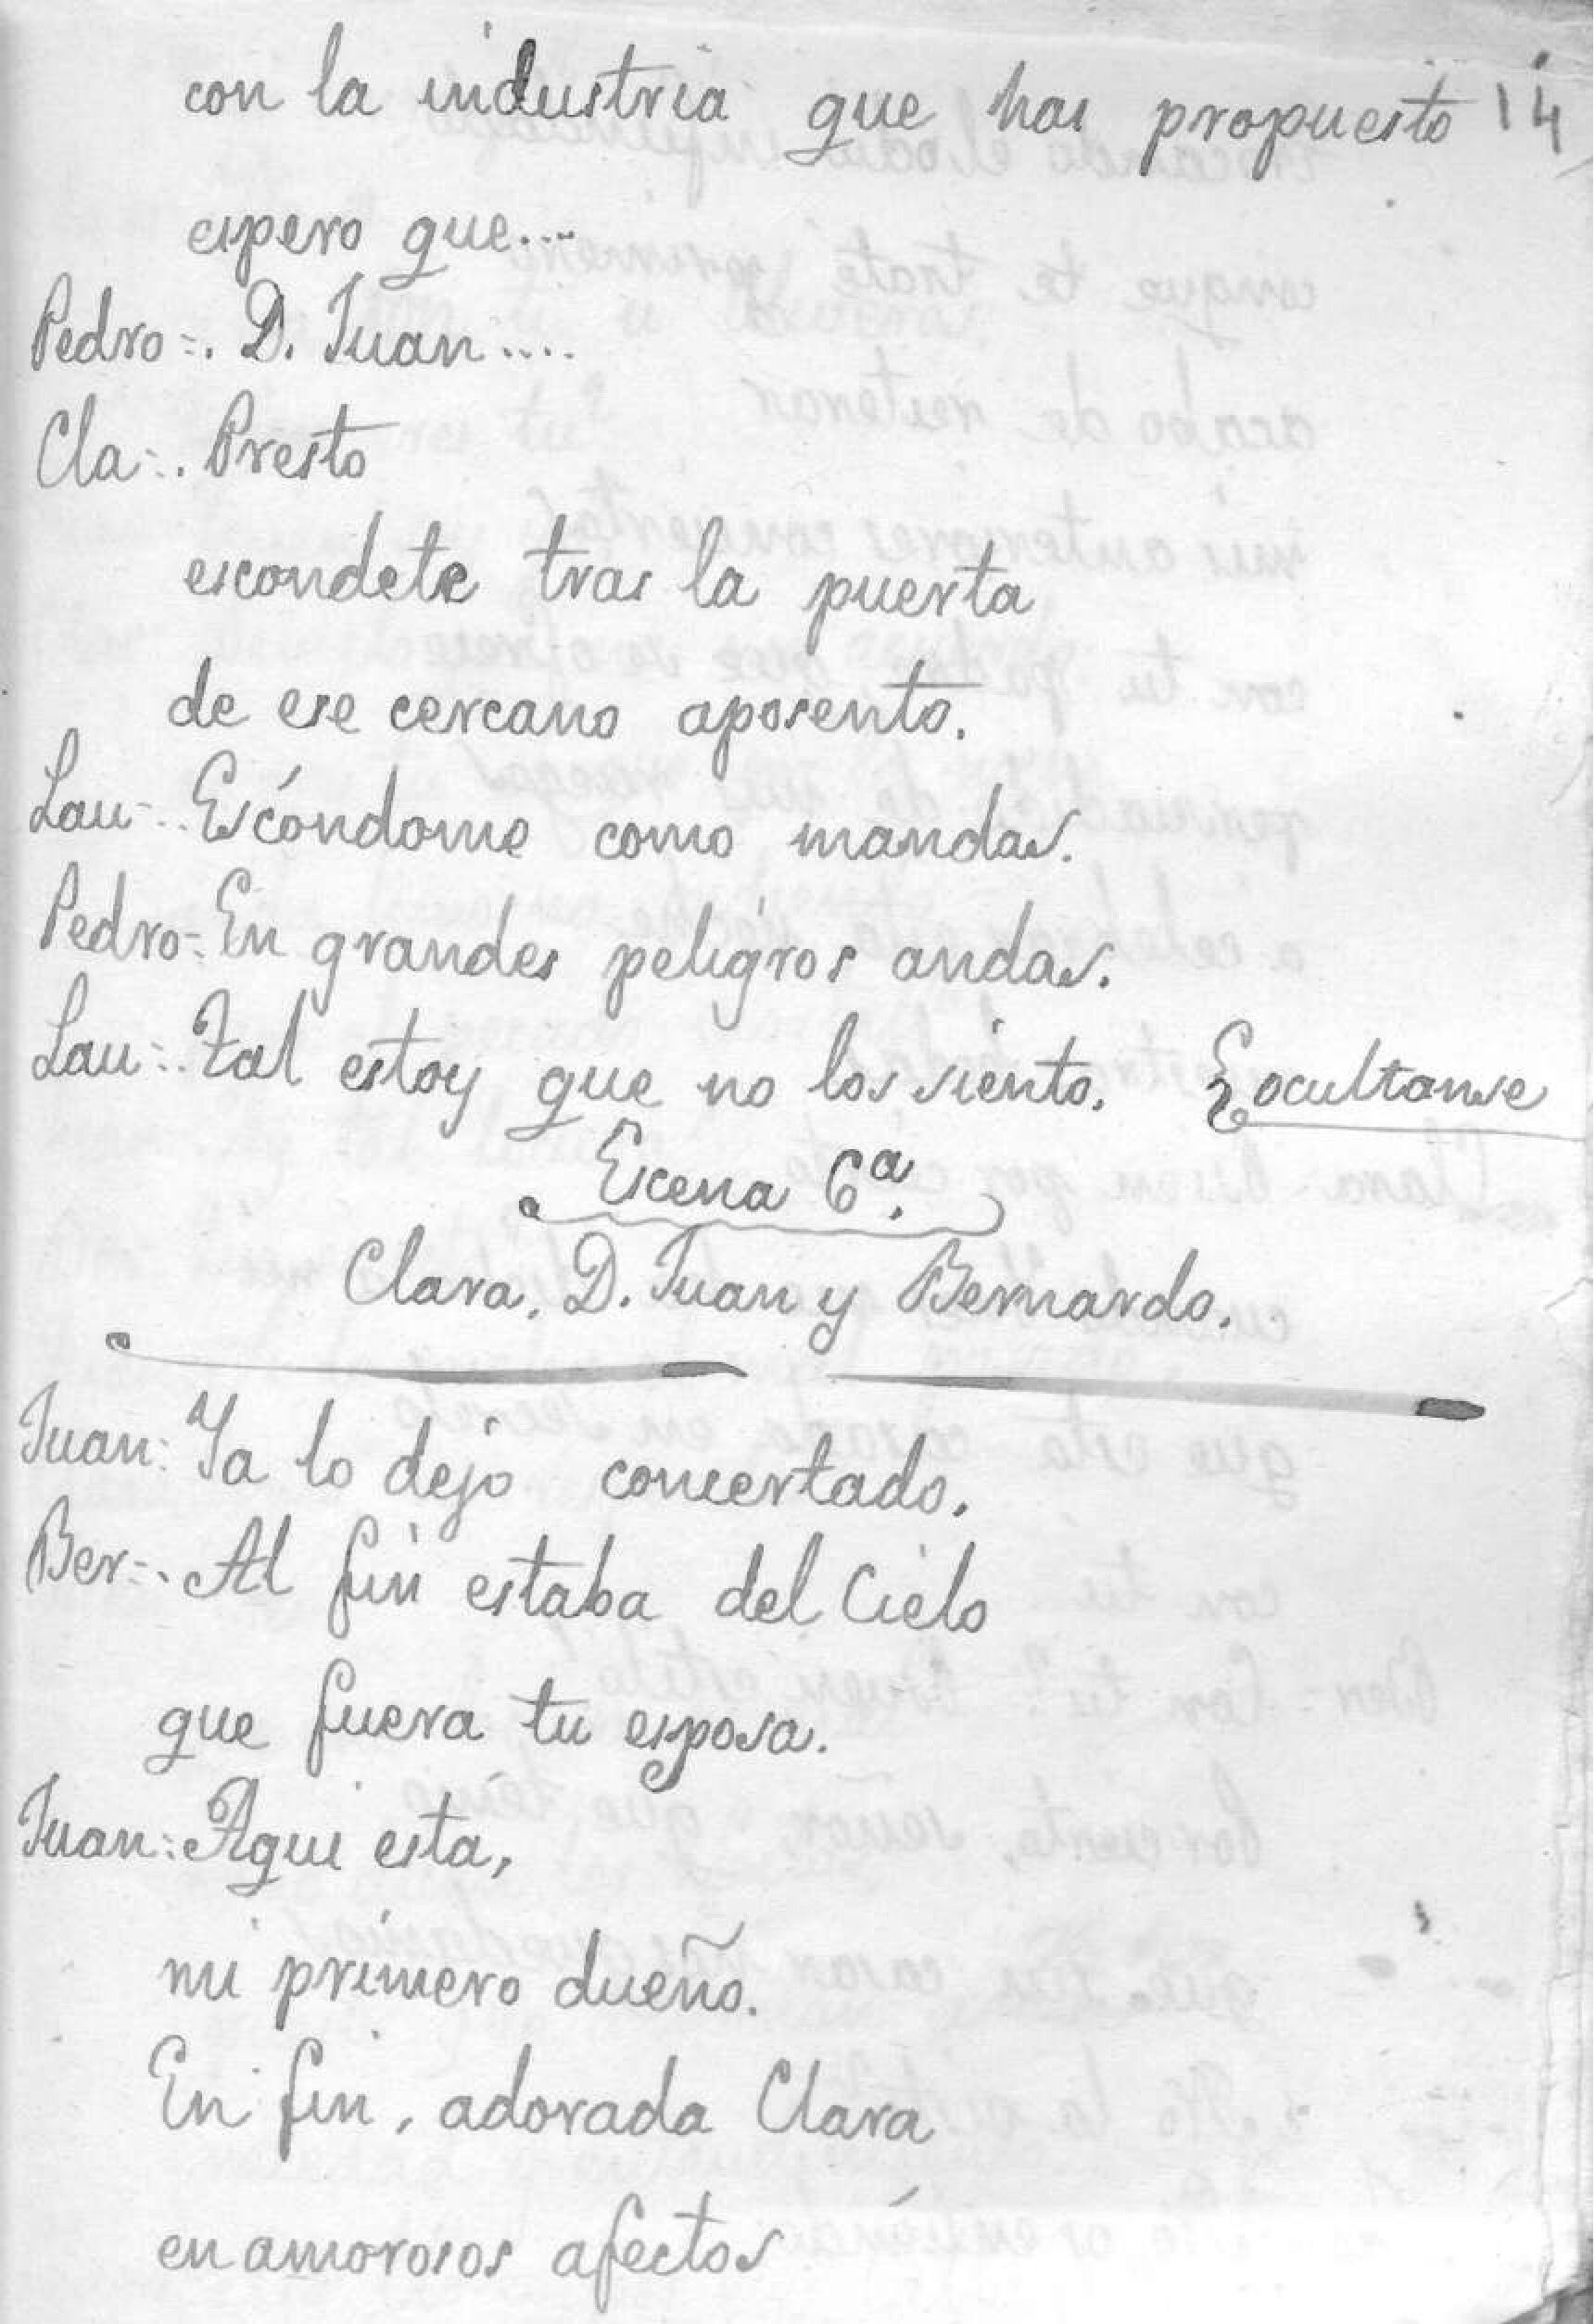 con la industria que has propuesto 14
espero que....
Pedro=. D. Juan....
Cla-. Presto
escondete tras la puerta
de ese cercano aposento.
Lau-. Escóndome como mandas.
Pedro-. En grandes peligros andas.
Lau-. Tal estoy que no los siento. ocultanse
Escena 6ª.
Clara, D. Juan y Bernardo.
Juan: Ya lo dejo concertado.
Ber-. Al fin estaba del Cielo
que fuera tu esposa.
Juan: Aqui esta,
mi primero dueño.
En fin, adorada Clara
en amorosos afectos